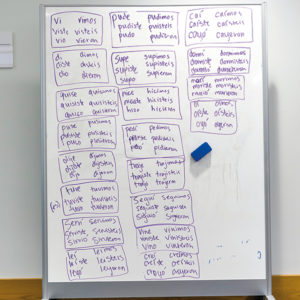 vi vimos
viste visteis
vio vieron
di dimos
diste disteis
dio dieron
quise quisimos
quisiste quisisteis
quiso quisieron
puse pusimos
pusiste pusisteis
puso pusieron
dije dijimos
dijiste
dijo dijeron
tuve tuvimos
tuviste tuvisteis
tuvo tuvieron
serví servimos
serviste servisteis
sirvió sirvieron
leí leímos
leíste leísteis
leyó leyeron
pude pudimos
pudiste pudisteis
pudo pudieron
supe supimos
supiste supisteis
supo supieron
hice hicimos
hiciste hicisteis
hizo hicieron
pedí pedimos
pediste pedisteis
pidió pidieron
traje trajimos
trajiste trajisteis
trajo trajeron
seguí seguimos
seguiste seguisteis
siguió siguieron
vine vinimos
viniste vinisteis
vino vinieron
creí creímos
creíste creísteis
creyó creyeron
caí caímos
caíste caísteis
cayó cayeron
dormí dormimos
dormiste dormisteis
durmió durmieron
morí morimos
moriste moristeis
murió murieron
oí oímos
oíste oísteis
oyó oyeron